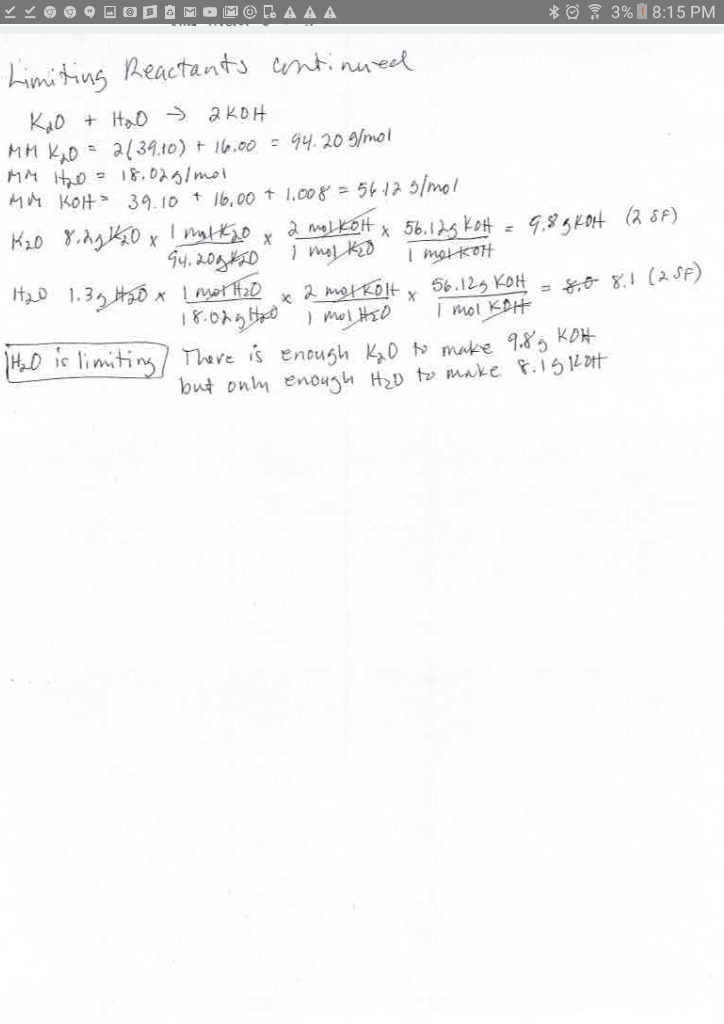 3% 8:15 PM
Limiting Reactants continued
K2O + H2O → 2KOH
MM K2O = 2(39.10) + 16.00 = 94.20 g/mol
MM H2O = 18.02g/mol
MM KOH = 39.10 + 16.00 + 1.008 = 56.12 g/mol
K2O 8.2g K2O x 1 mol K2O / 94.20g K2O x 2 mol KOH / 1 mol K2O x 56.12g KOH / 1 mol KOH = 9.8 g KOH (2 SF)
H2O 1.3g H2O x 1 mol H2O / 18.02g H2O x 2 mol KOH / 1 mol H2O x 56.12g KOH / 1 mol KOH = 8.0 8.1 (2 SF)
H2O is limiting There is enough K2O to make 9.8g KOH
but only enough H2O to make 8.1g KOH